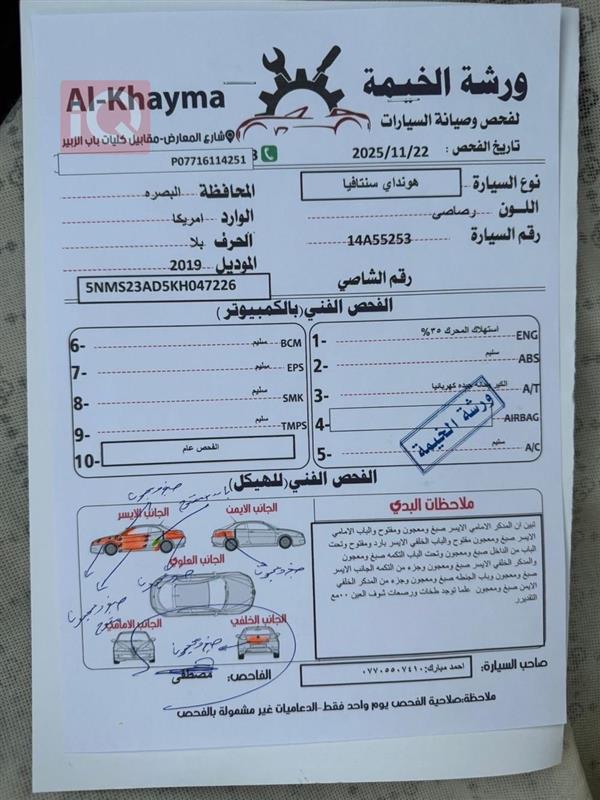 Al-Khayma
ورشة الخيمة
لفحص وصيانة السيارات
شارع المعارض-مقابيل كليات باب الزبير
تاريخ الفحص : 2025/11/22
P07716114251
نوع السيارة هونداي سنتافيا
المحافظة البصره
اللــون رصاصي
الوارد امريكا
رقم السيارة 14A55253
الحرف بلا
الموديل 2019
رقم الشاصي 5NMS23AD5KH047226
الفحص الفني (بالكمبيوتر)
1- استهلاك المحرك ٣٥% ENG
2- سليم ABS
3- A/T
4- AIRBAG
5- سليم A/C
ورشة الخيمة
6- سليم BCM
7- سليم EPS
8- سليم SMK
9- سليم TMPS
10- الفحص عام
الفحص الفني (للهيكل)
الجانب الايسر
الجانب الايمن
الجانب العلوي
الجانب الامامي
الجانب الخلفي
ملاحظات البدي
تبين ان المدكر الامامي الايسر صبغ ومعجون ومفتوح والباب الامامي
الايسر صبغ ومعجون مفتوح والباب الخلفي الايسر بارد ومفتوح وتحت
الباب من الداخل صبغ ومعجون وتحت الباب التكمه صبغ ومعجون
والمدكر الخلفي الايسر صبغ ومعجون وجزء من التكمه الجانب الايسر
صبغ ومعجون وباب الجنطه صبغ ومعجون وجزء من المدكر الخلفي
الايمن صبغ ومعجون علما توجد طخات ورصعات شوف العين ٠٠مع
التقديرر
الفاحص: مصطفى
صاحب السيارة: احمد مبارك:٠٧٧٠٥٥٠٧٤١٠
ملاحظة:صلاحية الفحص يوم واحد فقط-الدعاميات غير مشمولة بالفحص